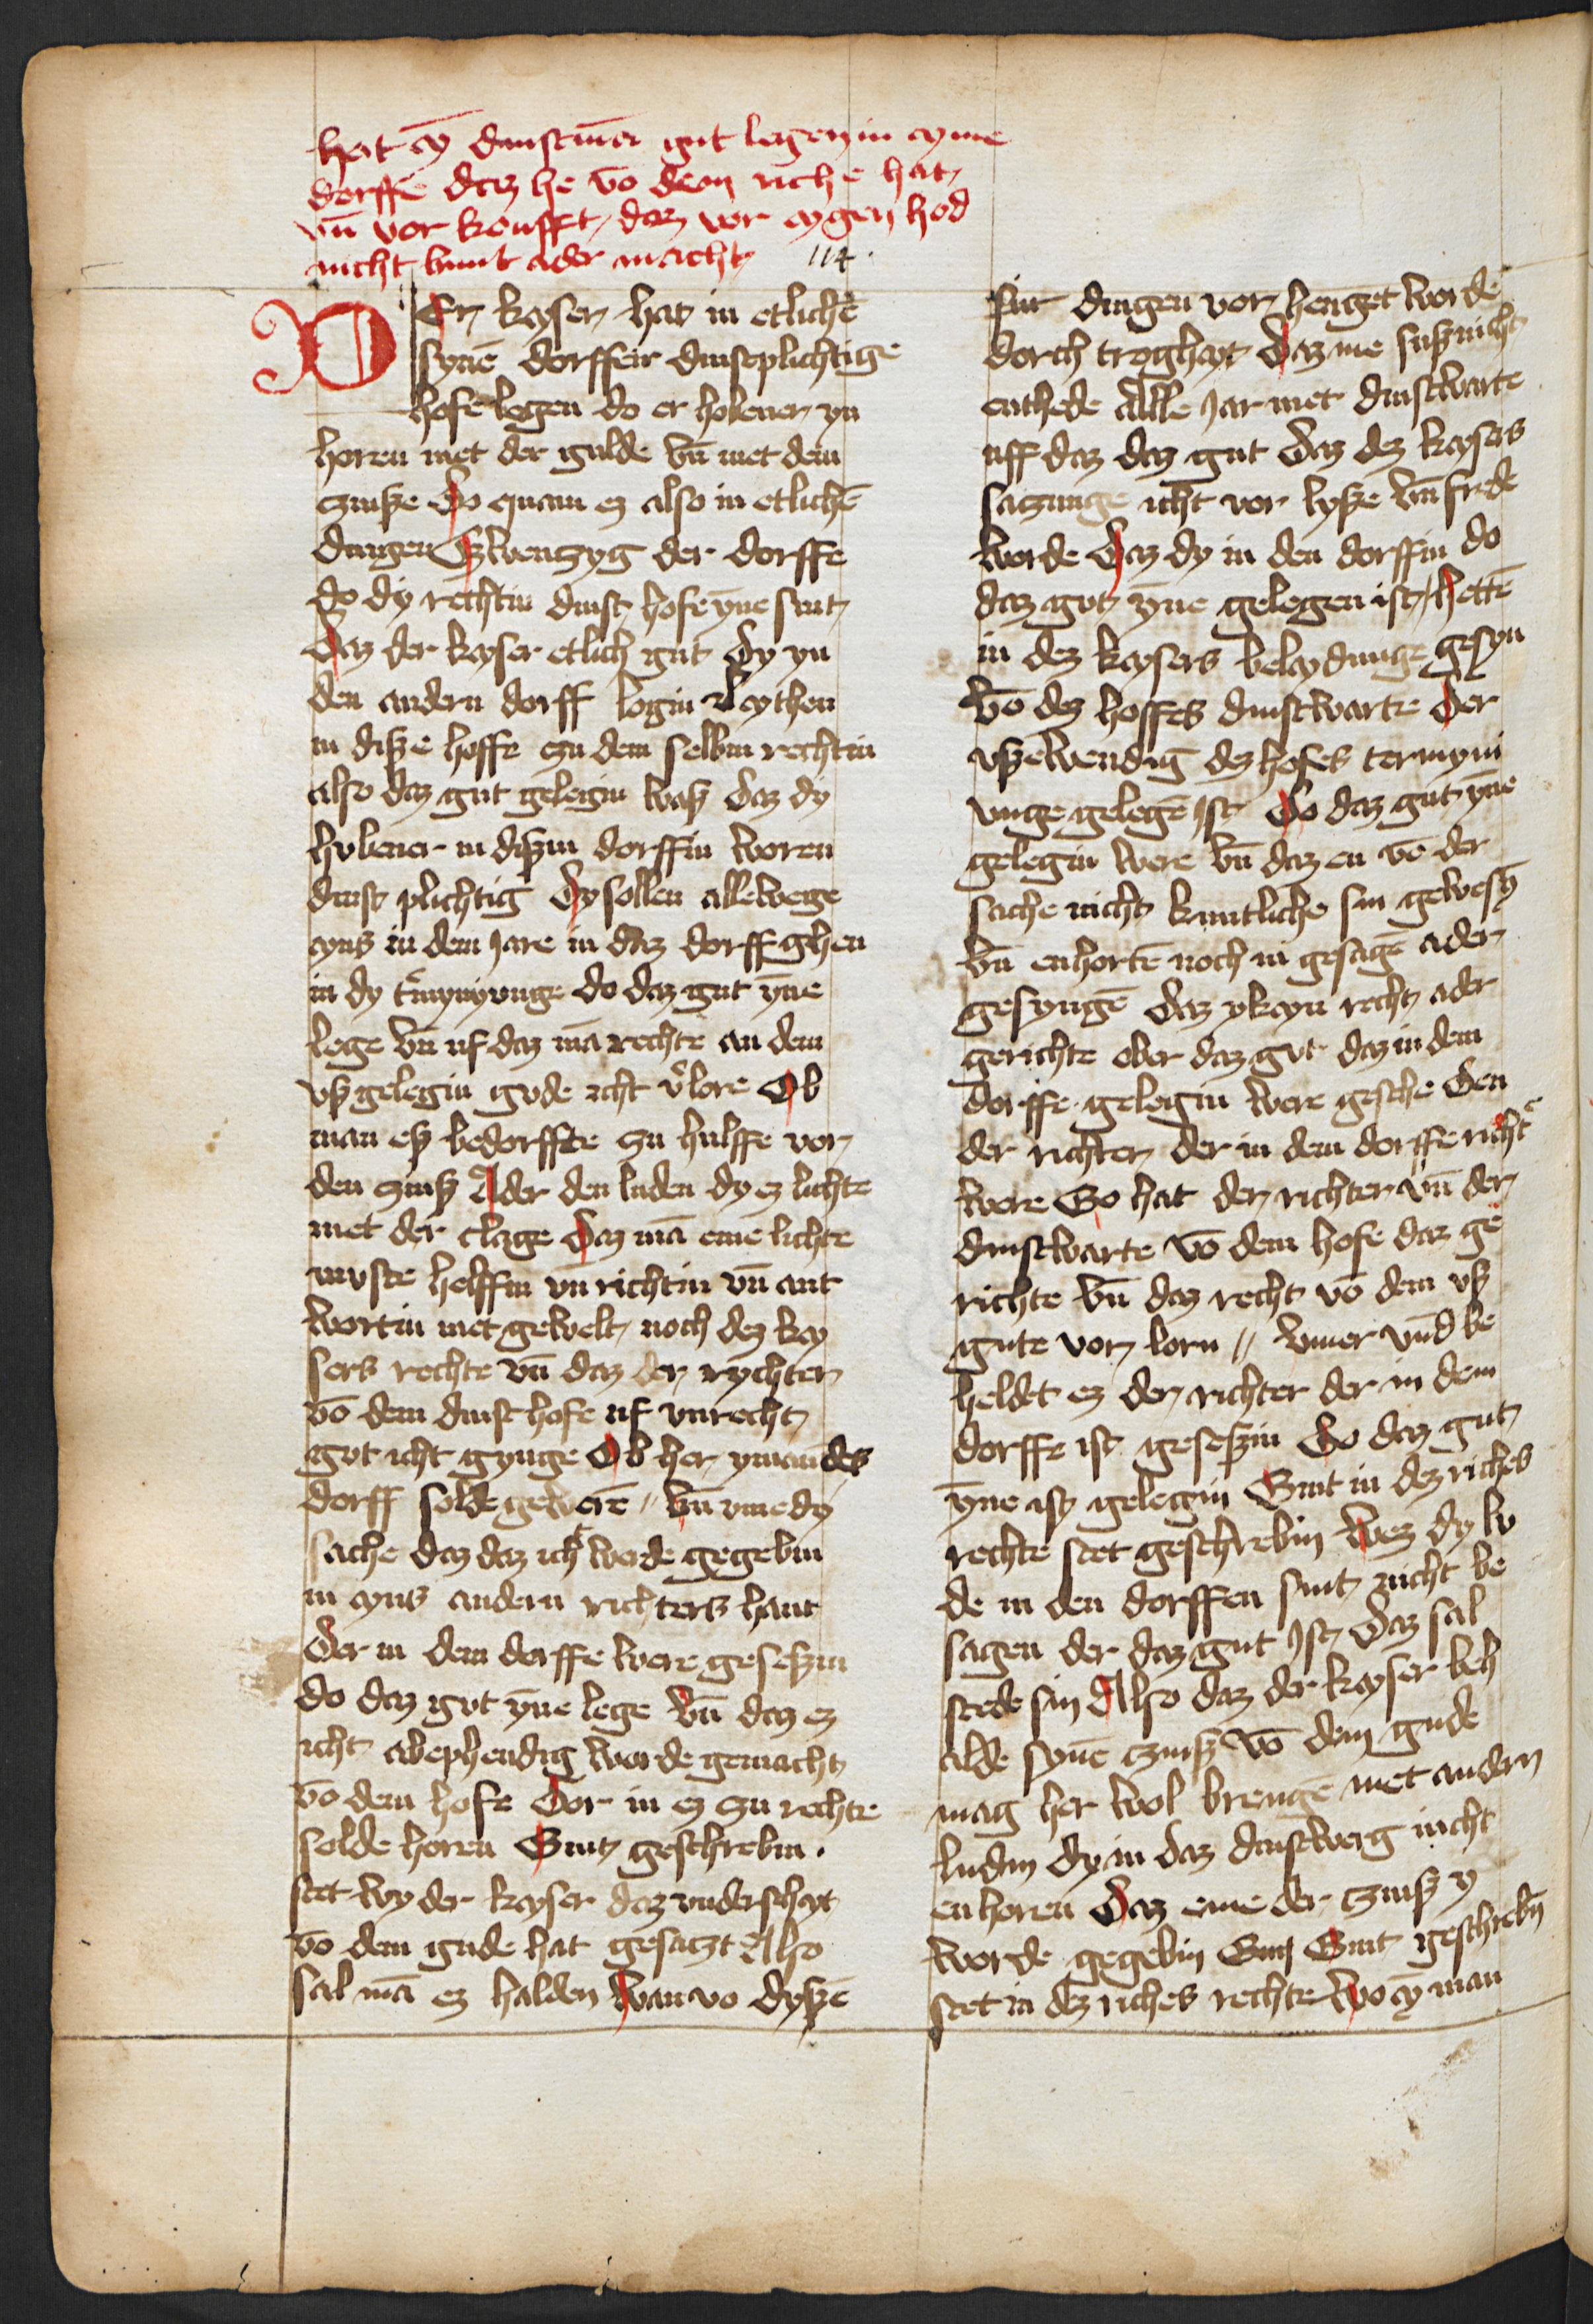 hat ey̅ dinstma̅ gut legen in eyme
dorffe daz he vo̅ dem riche hat
vn̅ vor koufft daz vor eygen hod
nicht bunt ader macht 114.
DEr keyser hat in etliche̅
syne̅ dorffern dinstplichtige
hofe legen do er hobener yn
horen met der gulde vn̅ met dem
czinsze Do quam ez also in etliche̅
dingen Czwenczyg der dorffe
do dy rechtin dinst hofe yn̅e sint
Daz der keyser etlich gut Dy yn
den andern dorff login Leythen
in disze hoffe czu dem selbin rechtin
also daz gut gelegin wasz Daz dy
hubener in diszin dorffin woren
dinst plichtig Dy sollen allewege
eyns in dem Jare in daz dorff ghen
in dy t̓mynyrunge do daz gut yn̅e
lege vn̅ uf daz ma̅ rechte an dem
vsz gelegin gude icht v̓lore Ob
man esz bedorffte czu hulffe vor
den czinsz Ader den luden dy ez lichte
met der clage Daz ma̅ eme lichte
muste helffin vn̅ richtin vn̅ ant
wortin met gewelt noch dez key
sers rechte vn̅ daz der rychter
vo̅ dem dinst hofe uf vnrecht
gut icht gynge Ob her ymandes
dorff solde gewere̅ // vn̅ vme dy
sache daz daz icht werde gegebin
in eyns andern richters hant
Der in dem dorffe were geseszin
do daz gut yn̅e lege vn̅ daz ez
icht abephendig worde gemacht
vo̅ dem hofe Dor in ez czu rechte
solde horen Sint geschrebin .
stet wy der keyser daz vnderscheyt
vo̅ dem gude hat gesaczt Also
sal ma̅ ez halden wan vo dysze̅
sint dingen vor henget worde̅
dorch tregheyt Daz me susz nicht
enthede Alle Jar met dinstwarte
uff daz daz gut Daz dez keysers
saczunge icht vor lysze vn̅ frede
worde Daz dy in den dorffin do
daz gut yn̅e gelegen ist hette̅
in dez keysers beleydunge gesyn
vo̅ dez hoffes dinstwarte Der
vszewendig dez hofes termyni
runge gelege̅ Ist Do daz gut yn̅e
gelegin were vn̅ daz en vo̅ der
sache nicht kuntliche sin gewesy̅
vn̅ enhorte̅ noch ni gesage̅ ader
gesynge̅ Daz ykeyn recht ader
gerichte ober daz gut daz in dem
dorffe gelegin were gesche Den
der richter der in dem dorffe richte̅
were So hat der richter vn̅ der
dinstwarte vo̅ dem hofe daz ge
richte vn̅ daz recht vo̅ dem vsz
gute vor lorn // vmer vnd be
heldet ez der richter der in dem
dorffe ist geseszin Do daz gut
yn̅e ist gelegin Sint in dez riches
rechte stet geschrebin wez dy lu
de in den dorffen sint nicht be
sagen der daz gut Ist Daz sal
stede sin Also daz der keyser beh
alde syne̅ czinsz vo̅ dem gude
mag her wol brenge̅ met andern
ludin dy in daz dinstwerg nicht
enhoren Daz eme der czinsz y
worde gegebin Sint geschrebn̅
stet in dez riches rechte wo ey̅ man